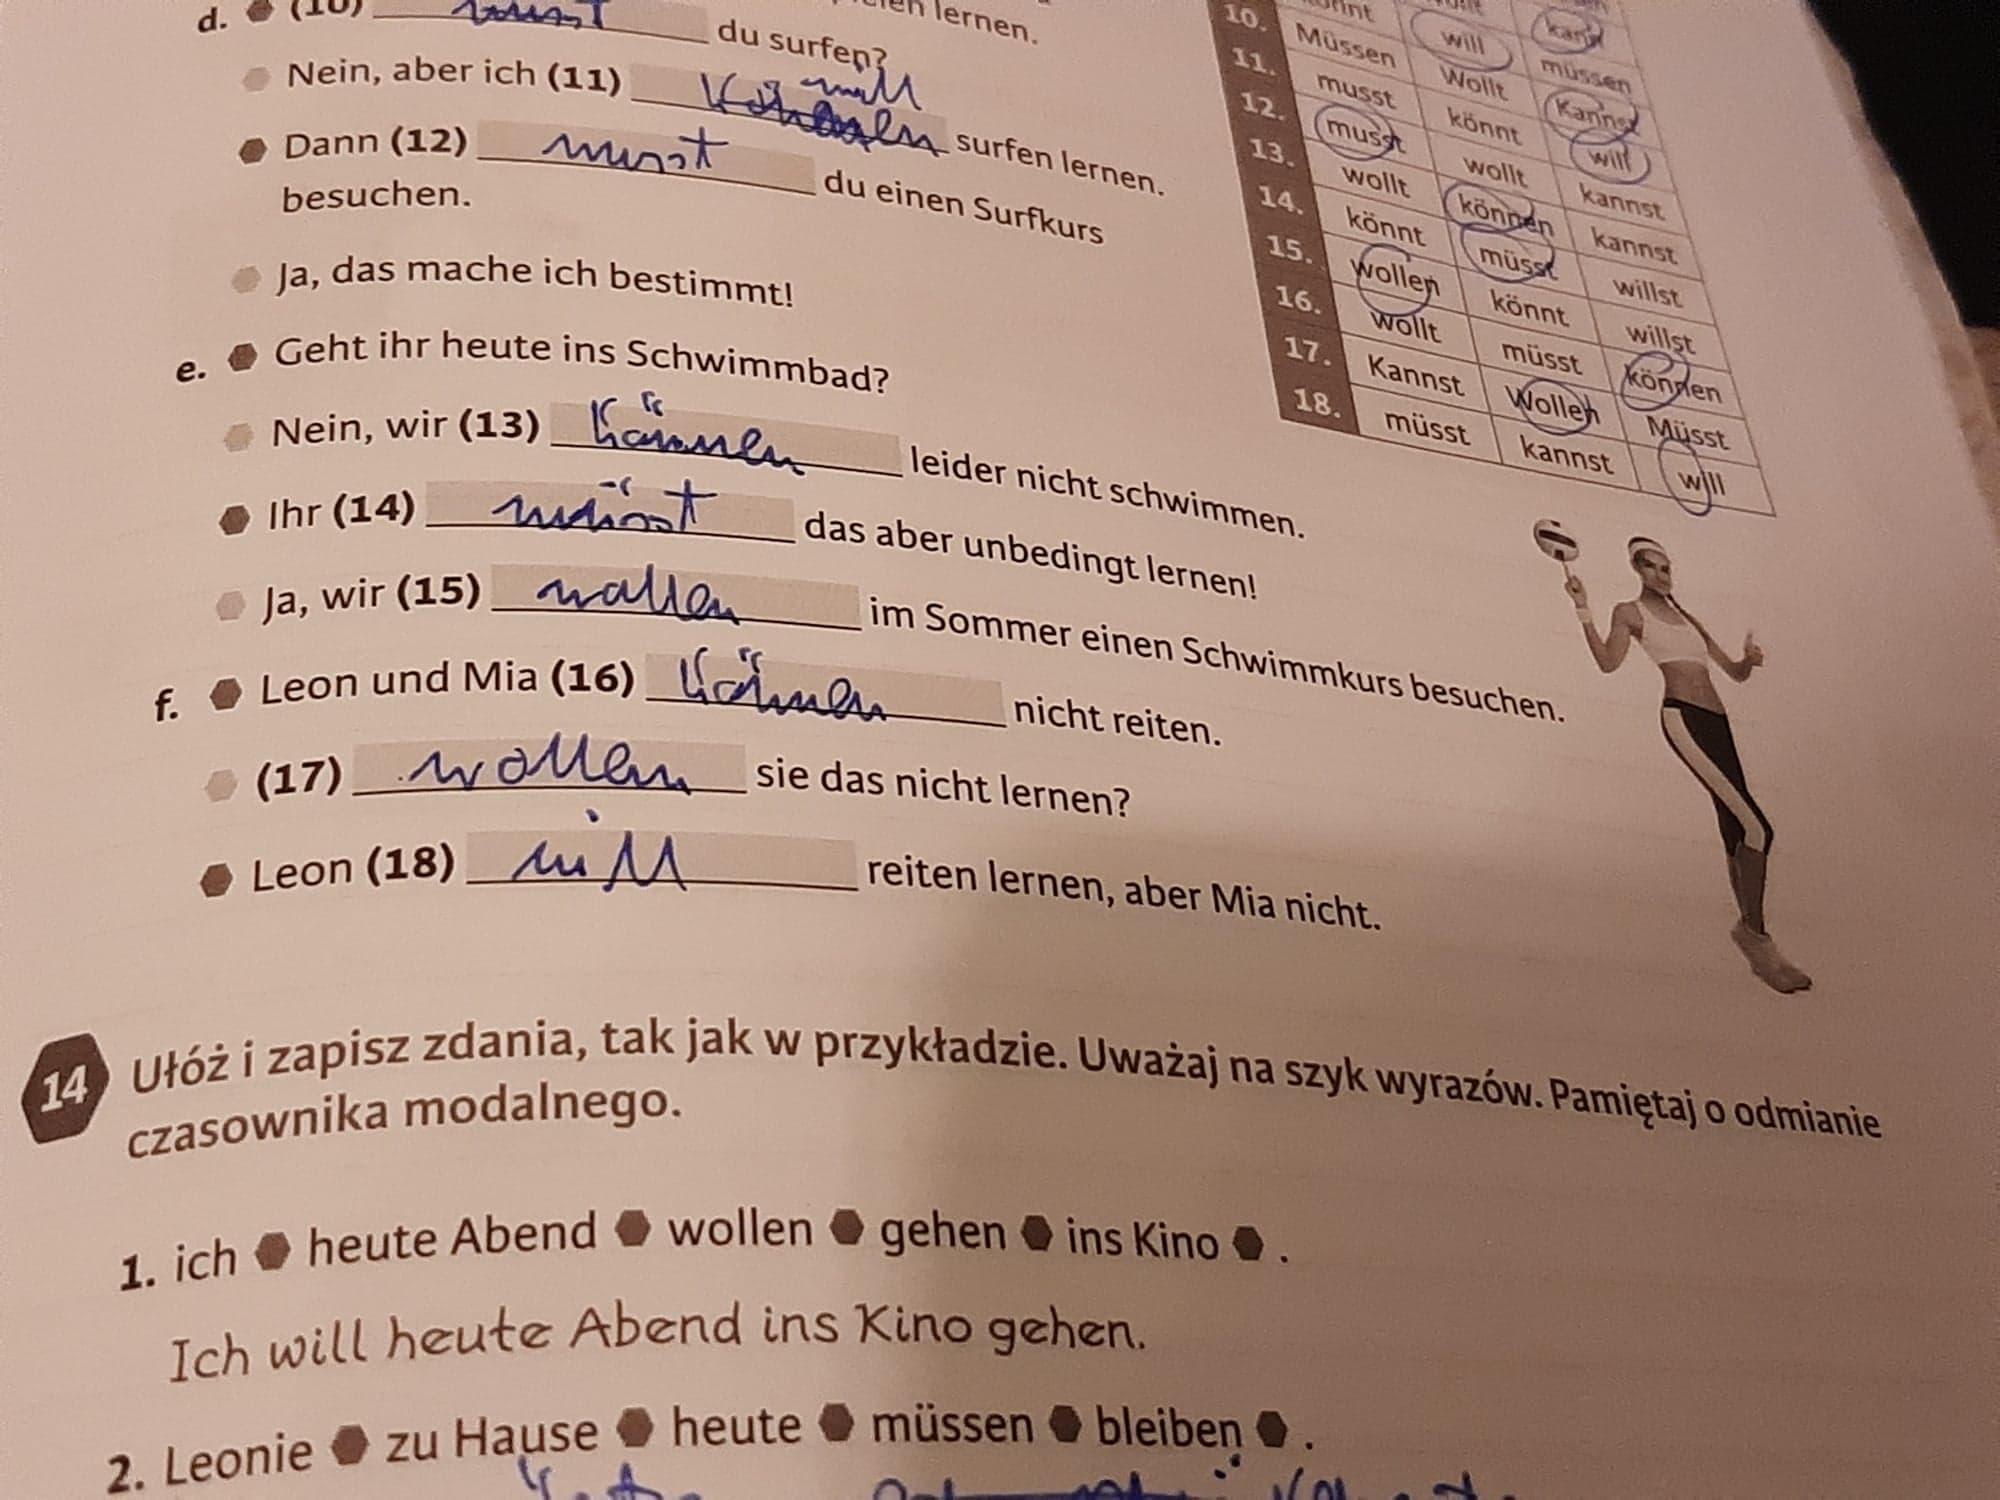 d. (10) musst du surfen?
Nein, aber ich (11) können will surfen lernen.
Dann (12) musst du einen Surfkurs
besuchen.
Ja, das mache ich bestimmt!
e. Geht ihr heute ins Schwimmbad?
Nein, wir (13) können leider nicht schwimmen.
Ihr (14) müsst das aber unbedingt lernen!
Ja, wir (15) wollen im Sommer einen Schwimmkurs besuchen.
f. Leon und Mia (16) können nicht reiten.
(17) wollen sie das nicht lernen?
Leon (18) will reiten lernen, aber Mia nicht.
lernen.
will kann
10. Müssen Wollt müssen
11. musst könnt Kannst
12. musst wollt will
13. wollt können kannst
14. könnt müsst kannst
15. wollen könnt willst
16. wollt müsst willst
17. Kannst Wollen können
18. müsst kannst Müsst
will
14 Ułóż i zapisz zdania, tak jak w przykładzie. Uważaj na szyk wyrazów. Pamiętaj o odmianie
czasownika modalnego.
1. ich heute Abend wollen gehen ins Kino .
Ich will heute Abend ins Kino gehen.
2. Leonie zu Hause heute müssen bleiben .